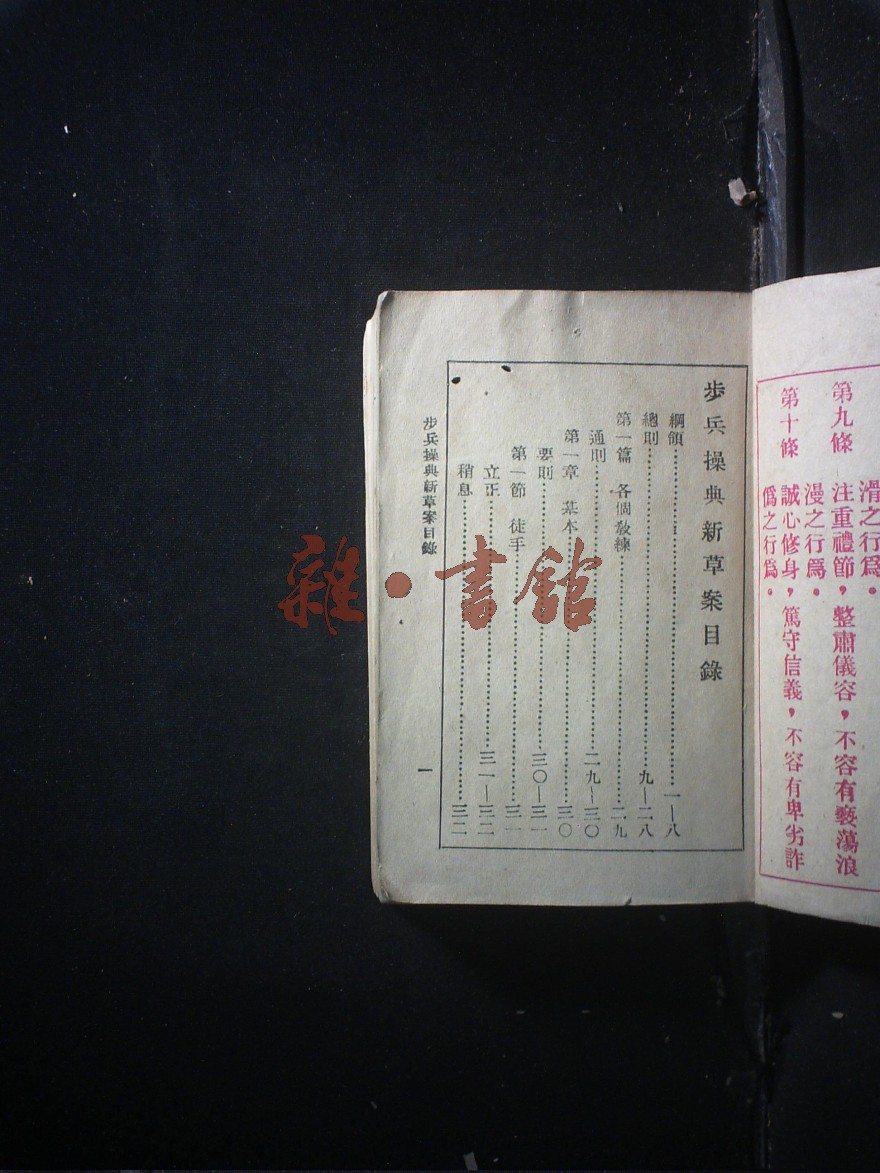 滑之行爲。
第九條 注重禮節，整肅儀容，不容有褻蕩浪
漫之行爲。
第十條 誠心修身，篤守信義，不容有卑劣詐
僞之行爲。
步兵操典新草案目錄
綱領……一—八
總則……九—二八
第一篇 各個敎練……二九
通則……二九—三〇
第一章 基本……三〇
要則……三〇—三一
第一節 徒手……三一
立正……三一—三二
稍息……三二
步兵操典新草案目錄 一
雜·書館